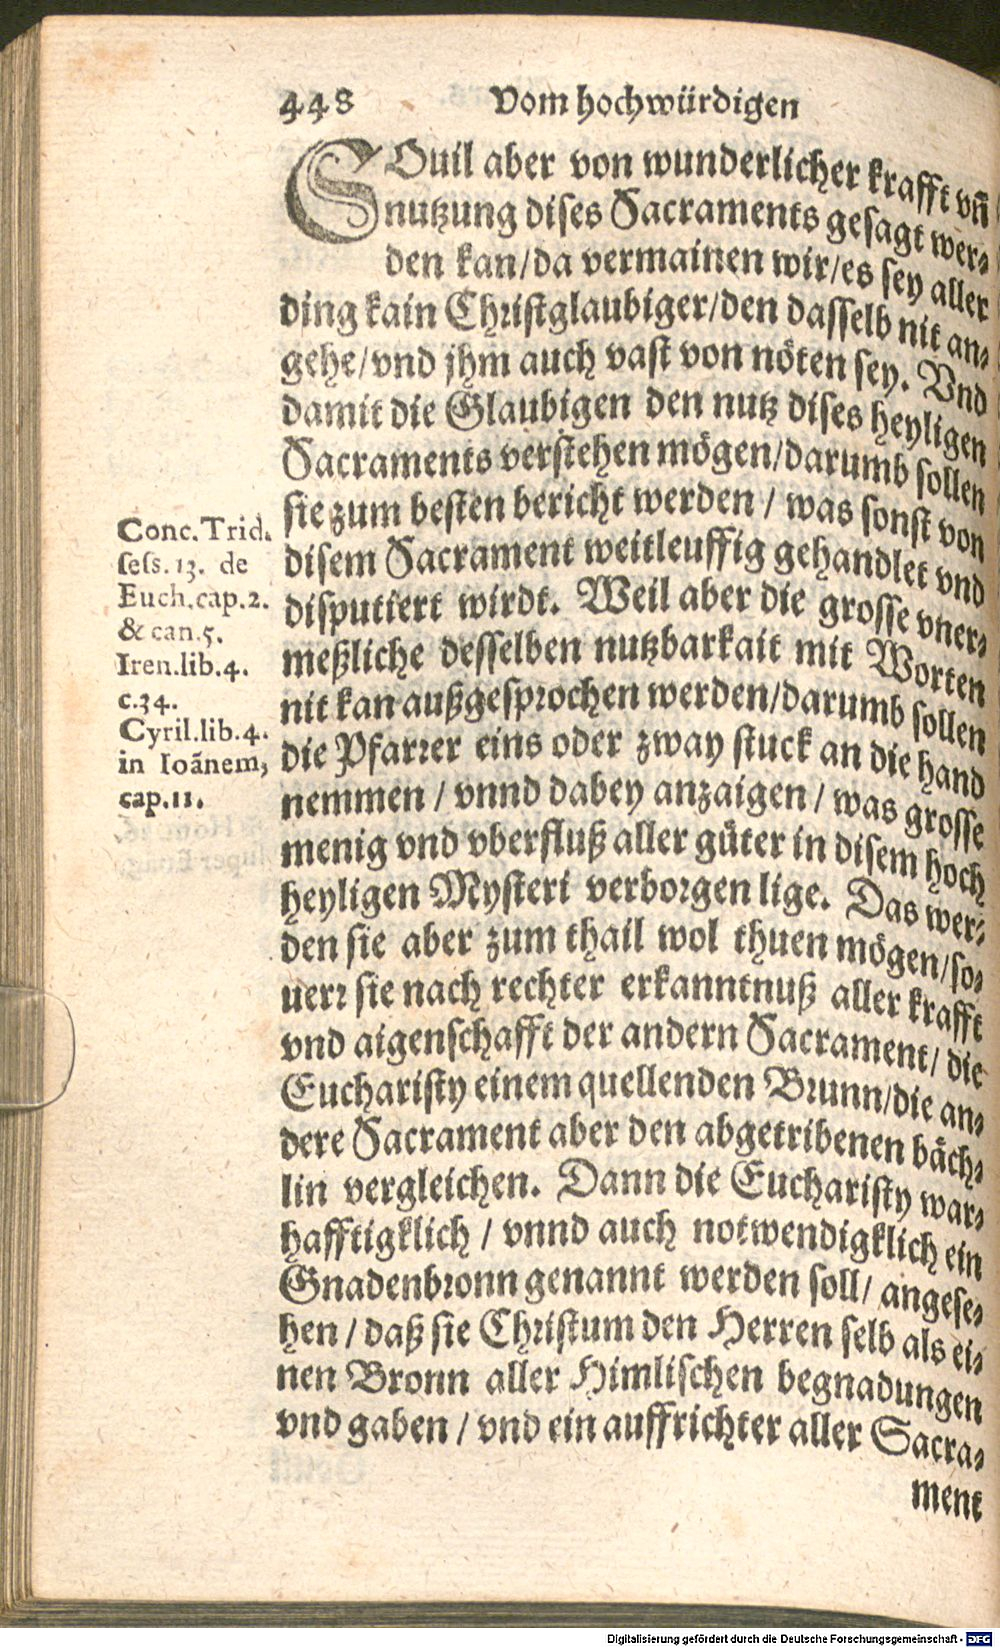 448 Vom hochwürdigen
SOuil aber von wunderlicher krafft vñ
nutzung dises Sacraments gesagt wer-
den kan/da vermainen wir/es sey aller
ding kain Christglaubiger/den dasselb nit an-
gehe/vnd jhm auch vast von nöten sey. Vnd
damit die Glaubigen den nutz dises heyligen
Sacraments verstehen mögen/darumb sollen
sie zum besten bericht werden / was sonst von
disem Sacrament weitleuffig gehandlet vnd
disputiert wirdt. Weil aber die grosse vner-
meßliche desselben nutzbarkait mit Worten
nit kan außgesprochen werden/darumb sollen
die Pfarrer eins oder zway stuck an die hand
nemmen / vnnd dabey anzaigen / was grosse
menig vnd vberfluß aller güter in disem hoch
heyligen Mysteri verborgen lige. Das wer-
den sie aber zum thail wol thuen mögen/so-
uerr sie nach rechter erkanntnuß aller krafft
vnd aigenschafft der andern Sacrament/ die
Eucharisty einem quellenden Brunn/die an-
dere Sacrament aber den abgetribenen bäch-
lin vergleichen. Dann die Eucharisty war-
hafftigklich / vnnd auch notwendigklich ein
Gnadenbronn genannt werden soll/ angese-
hen / daß sie Christum den Herren selb als ei-
nen Bronn aller Himlischen begnadungen
vnd gaben / vnd ein auffrichter aller Sacra-
ment
Conc. Trid.
sess. 13. de
Euch. cap. 2.
& can. 5.
Iren. lib. 4.
c. 34.
Cyril. lib. 4.
in Ioãnem,
cap. 11.
Digitalisierung gefördert durch die Deutsche Forschungsgemeinschaft - DFG